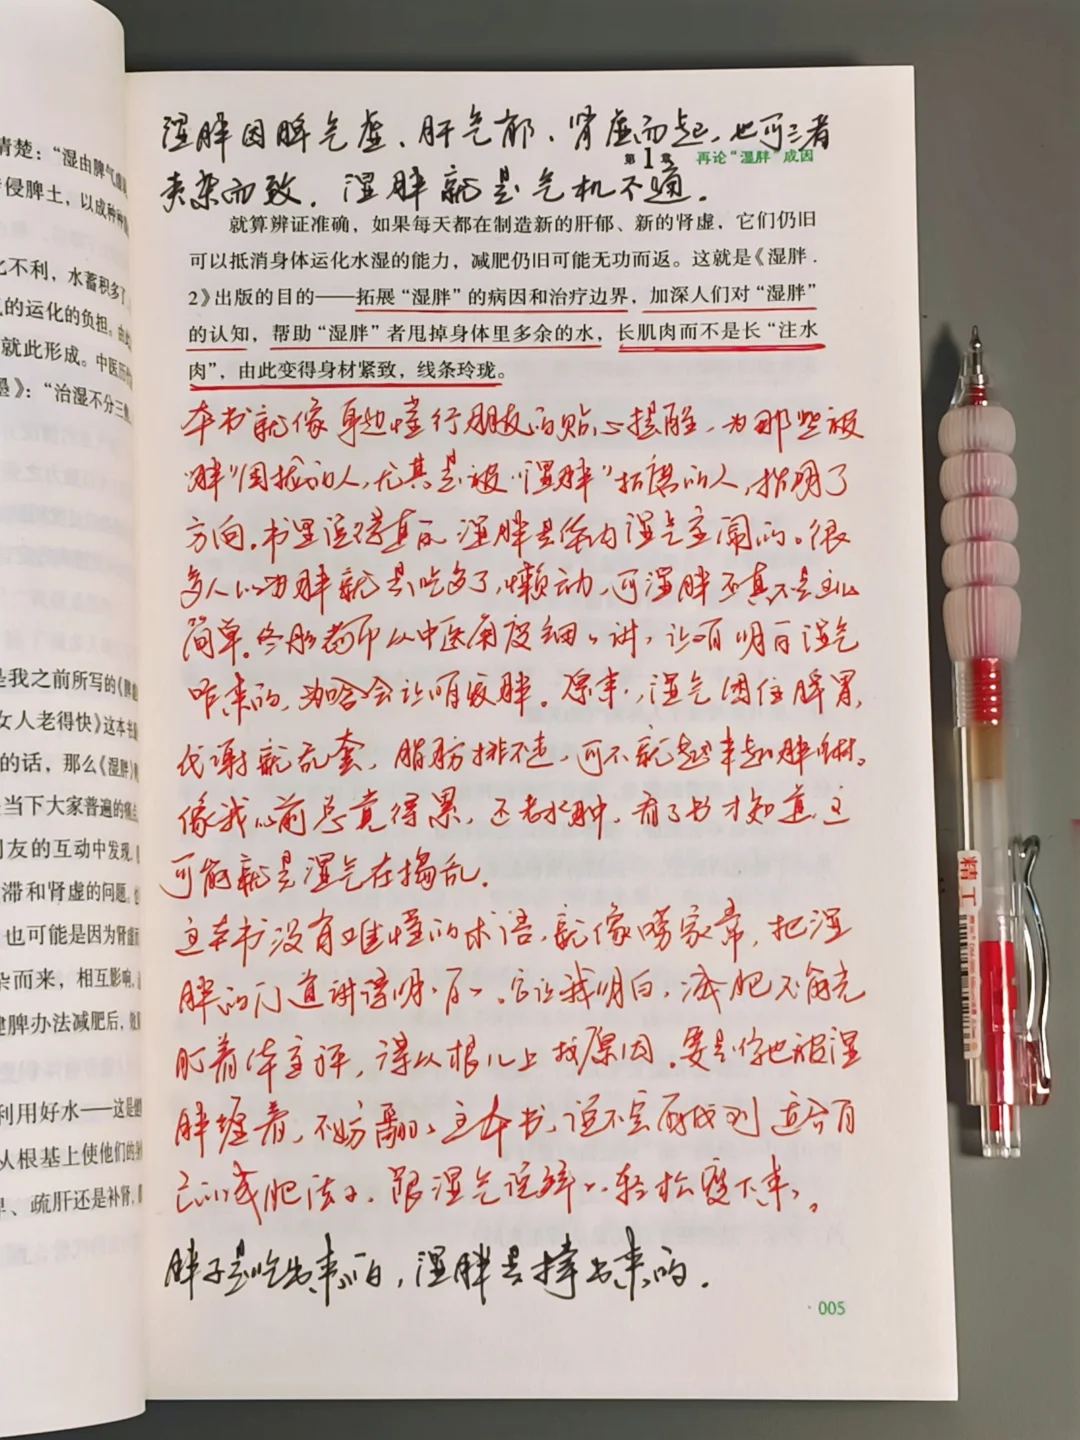 清楚：“湿由脾气虚
侵脾土，以成种种
化不利，水蓄积多了
的运化的负担。由
就此形成。中医历
墨》：“治湿不分三焦
是我之前所写的《脾虚
女人老得快》这本书
的话，那么《湿胖》
是当下大家普遍的痛点
友的互动中发现，
滞和肾虚的问题。
也可能是因为肾虚而
杂而来，相互影响，
健脾办法减肥后，
利用好水——这是
从根基上使他们的身
、疏肝还是补肾，
湿胖因脾气虚、肝气郁、肾虚而起，也可三者
第1章 再论“湿胖”成因
夹杂而致，湿胖就是气机不通。
就算辨证准确，如果每天都在制造新的肝郁、新的肾虚，它们仍旧
可以抵消身体运化水湿的能力，减肥仍旧可能无功而返。这就是《湿胖.
2》出版的目的——拓展“湿胖”的病因和治疗边界，加深人们对“湿胖”
的认知，帮助“湿胖”者甩掉身体里多余的水，长肌肉而不是长“注水
肉”，由此变得身材紧致，线条玲珑。
本书就像身边懂行朋友的贴心提醒，为那些被
胖”困扰的人，尤其是被“湿胖”折磨的人，指明了
方向。书里说得直白，湿胖是体内湿气在闹的。很
多人以为胖就是吃多了，懒动，可湿胖还真不是这么
简单。佟彤老师从中医角度细细讲，让咱明白湿气
咋来的，为啥会让咱发胖。原来，湿气困住脾胃，
代谢就乱套，脂肪排不走，可不就越来越胖嘛。
像我以前总觉得累，还老水肿，看了书才知道，这
可能就是湿气在捣乱。
这本书没有难懂的术语，就像唠家常，把湿
胖的门道讲得明明白白。它让我明白，减肥不能光
盯着体重秤，得从根儿上找原因，要是你也被湿
胖缠着，不妨翻翻这本书，说不定能找到适合自
己的减肥法子，跟湿气说拜拜，轻松瘦下来。
胖子是吃出来的，湿胖是撑出来的。
005
精工